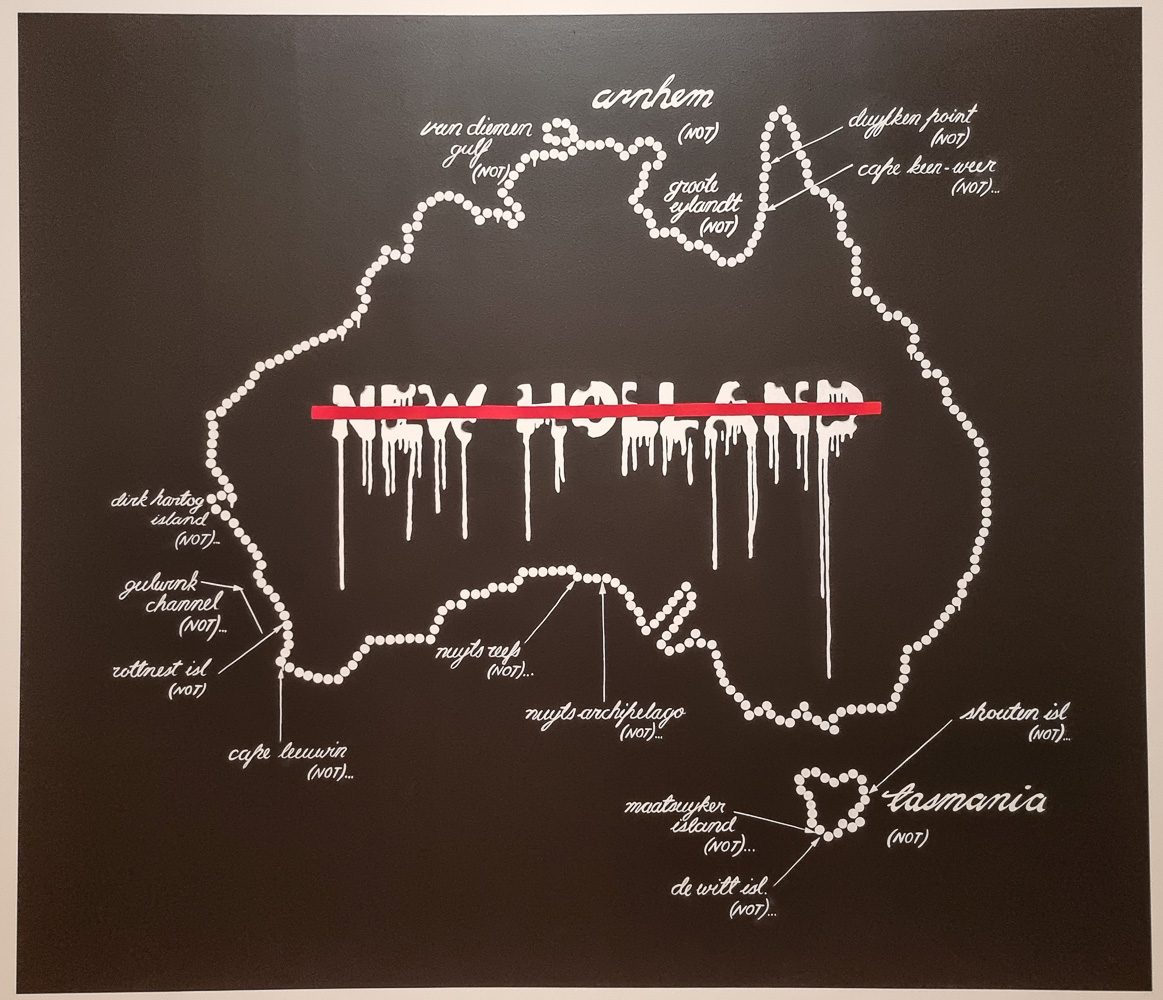 arnhem
(NOT)
van diemen
gulf
(NOT)
duyfken point
(NOT)
cape keen-weer
(NOT)...
groote
eylandt
(NOT)
NEW HOLLAND
dirk hartog
island
(NOT)...
gulwnk
channel
(NOT)...
rottnest isl
(NOT)
cape leeuwin
(NOT)...
nuyts reefs
(NOT)...
nuyts-archipelago
(NOT)...
shouten isl
(NOT)...
tasmania
(NOT)
maatsuyker
island
(NOT)...
de witt isl.
(NOT)...